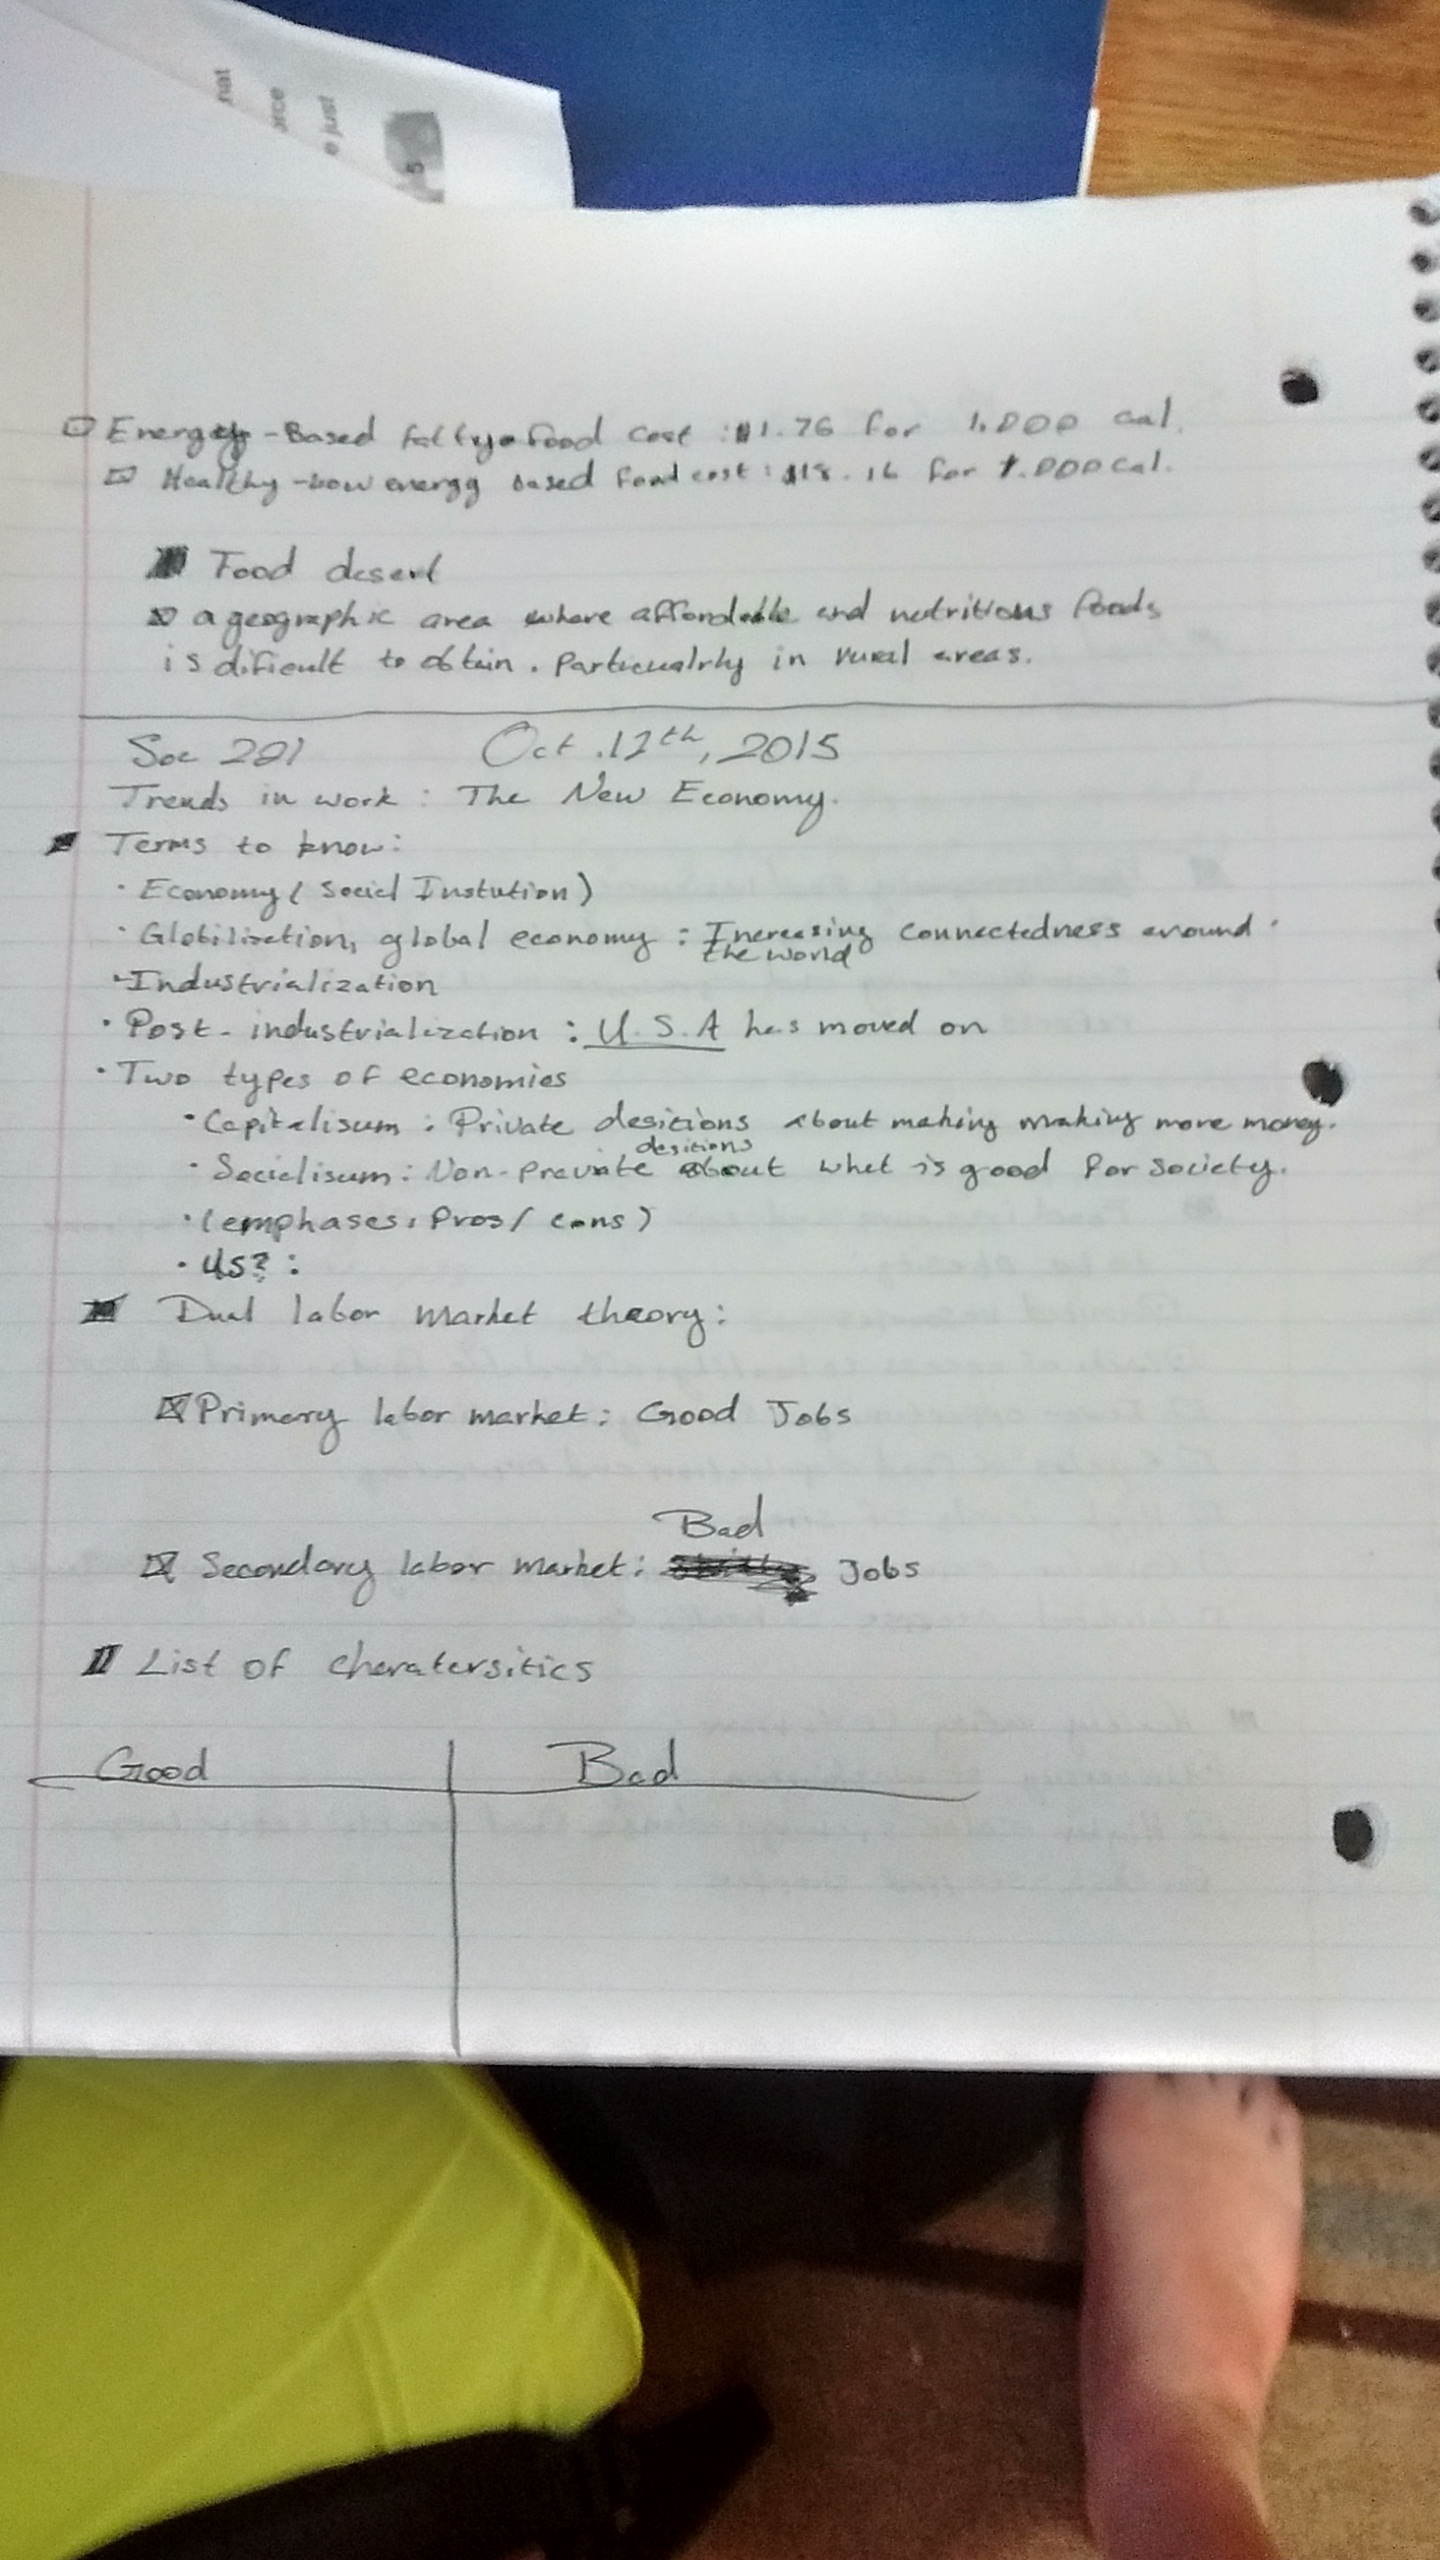 nat
arce
e just
5
Energy-Based fatty food cost : $1.76 for 1.000 cal.
Healthy-low energy based food cost: $18.16 for 1.000 cal.
Food desert
a geographic area where affordable and nutritious foods
is dificult to obtain. Particualrly in rural areas.
Soc 201 Oct.12th, 2015
Trends in work : The New Economy.
Terms to know:
· Economy (Social Instution)
· Globilization, global economy : Increasing connectedness around
the world
· Industrialization
· Post-industrialization : U.S.A has moved on
· Two types of economies
· Capitalisum : Private desitions about making making more money.
desitions
· Socialisum : Non-private about what is good for society.
· (emphases, Pros/cons)
· US? :
Dual labor market theory:
Primary labor market: Good Jobs
Bad
Secondary labor market: Jobs
List of charatersitics
Good Bad